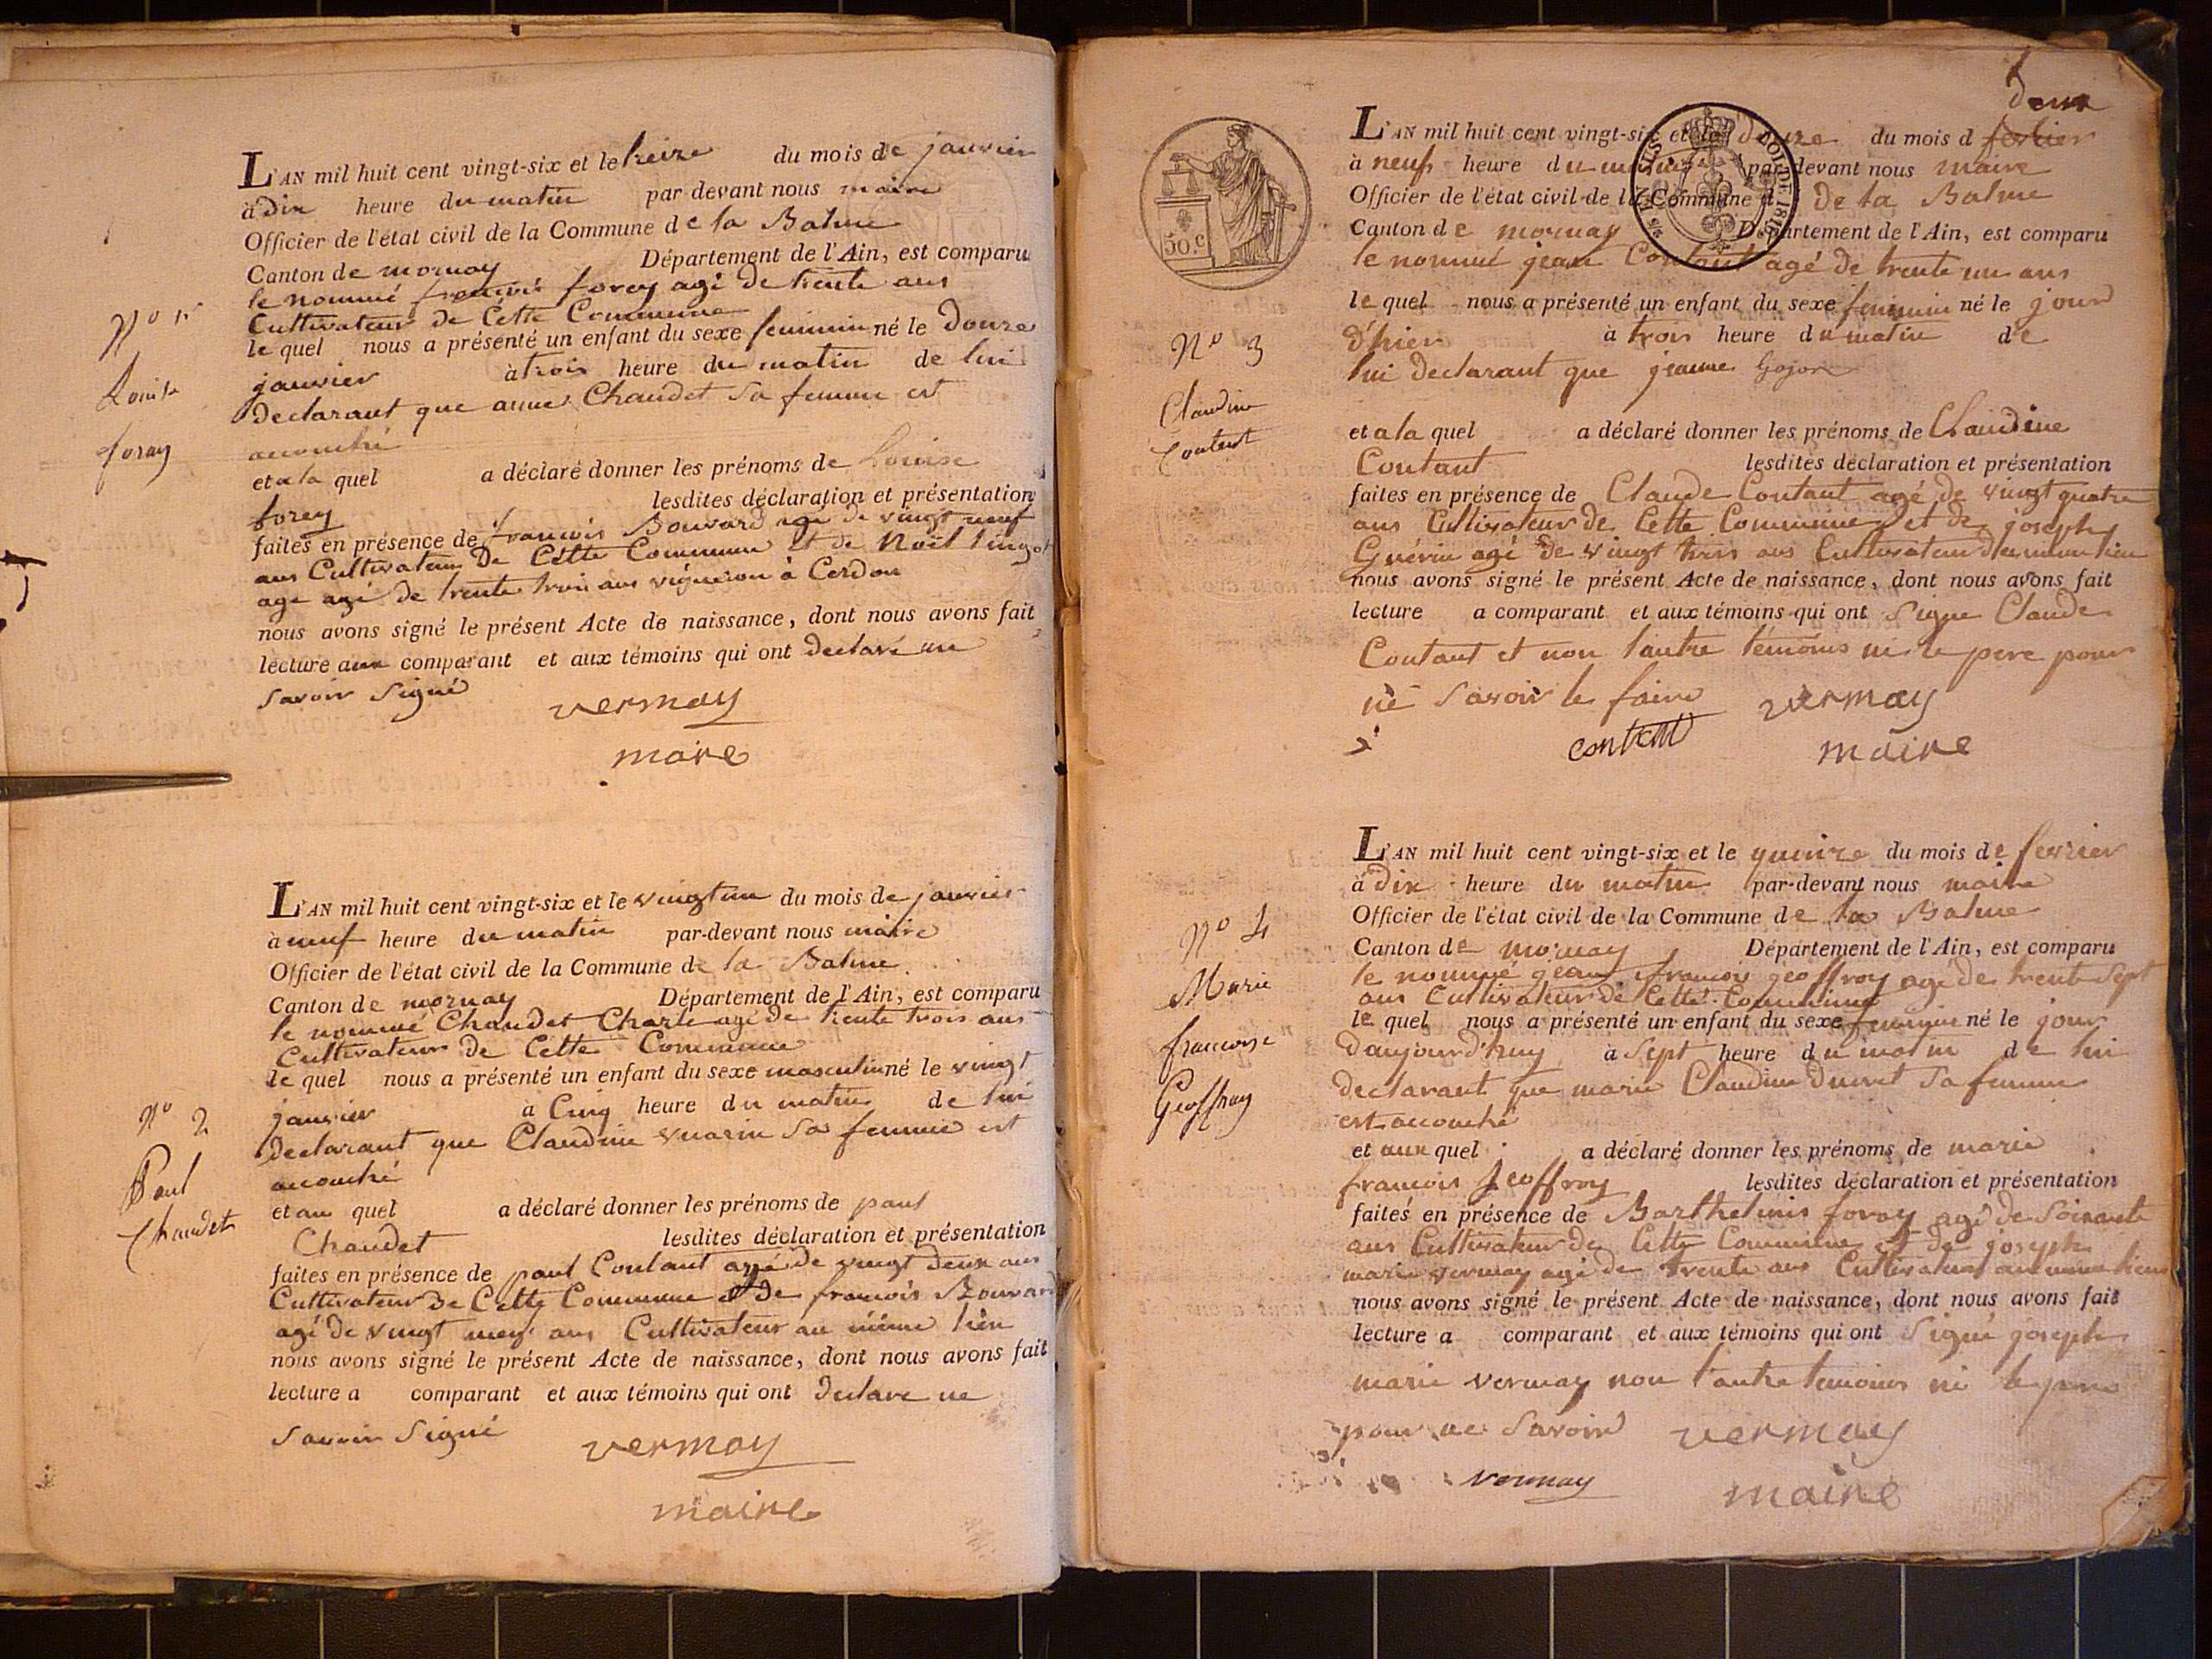 L'AN mil huit cent vingt-six et le treize du mois de janvier
à dix heure du matin par devant nous maire
Officier de l'état civil de la Commune de la Balme
Canton de mornay Département de l'Ain, est comparu
le nommé françois forey agé de trente ans
Cultivateur de Cette Commune
N° 1er
le quel nous a présenté un enfant du sexe feminin né le douze
janvier à trois heure du matin de lui
Louise
declarant que anne Chaudet sa femme est
accouché
foray
et a la quel a déclaré donner les prénoms de Louise
forey lesdites déclaration et présentation
faites en présence de françois Bouvard agé de vingt neuf
ans Cultivateur De Cette Commune et de Noël
age agé de trente trois ans vigneron à Cerdon
nous avons signé le présent Acte de naissance, dont nous avons fait
lecture aux comparant et aux témoins qui ont declaré ne
savoir signé
vermay
maire
L'AN mil huit cent vingt-six et le vingt un du mois de janvier
à neuf heure du matin par-devant nous maire
Officier de l'état civil de la Commune de la Balme
Canton de mornay Département de l'Ain, est comparu
le nommé Chaudet Charle agé de trente trois ans
Cultivateur de Cette Commune
le quel nous a présenté un enfant du sexe masculin né le vingt
N° 2
janvier à Cinq heure du matin de lui
declarant que Claudine vuarin sa femme est
Paul
accouché
Chaudet
et au quel a déclaré donner les prénoms de paul
Chaudet lesdites déclaration et présentation
faites en présence de paul Contant agé de vingt deux ans
Cultivateur De Cette Commune et de francois Bouvard
agé de vingt neuf ans Cultivateur au même lieu
nous avons signé le présent Acte de naissance, dont nous avons fait
lecture a comparant et aux témoins qui ont declare ne
savoir signé
vermay
maire
deux
L'AN mil huit cent vingt-six et le douze du mois d fevrier
à neuf heure du matin par devant nous maire
Officier de l'état civil de la Commune d de la Balme
50.c
Canton de mornay Département de l'Ain, est comparu
le nommé jean Contant agé de trente un ans
le quel nous a présenté un enfant du sexe feminin né le jour
N° 3
d'hier à trois heure du matin de
lui declarant que jeanne Gojon
Claudine
Contant
et a la quel a déclaré donner les prénoms de Claudine
Contant lesdites déclaration et présentation
faites en présence de Claude Contant agé de vingt quatre
ans Cultivateur de Cette Commune et de joseph
Guérin agé de vingt trois ans Cultivateur du même lieu
nous avons signé le présent Acte de naissance, dont nous avons fait
lecture a comparant et aux témoins qui ont signe Claude
Contant et non l'autre témoins ni le pere pour
ne savoir le faire vermay
contant maire
L'AN mil huit cent vingt-six et le quinze du mois de fevrier
à dix heure du matin par-devant nous maire
Officier de l'état civil de la Commune de la Balme
N° 4
Canton de mornay Département de l'Ain, est comparu
le nommé jean françois geoffroy agé de trente sept
Marie
ans Cultivateur de Cette Commune
le quel nous a présenté un enfant du sexe feminin né le jour
francoise
d'aujourd'huy à sept heure du matin de lui
declarant que marie Claudine sa femme
Geoffray
est accouché
et aux quel a déclaré donner les prénoms de marie
francois Jeoffroy lesdites déclaration et présentation
faites en présence de Barthelimis foray agé de Soixante
ans Cultivateur de Cette Commune et de joseph
marie vermay agé de trente ans Cultivateur au même lieu
nous avons signé le présent Acte de naissance, dont nous avons fait
lecture a comparant et aux témoins qui ont signé joseph
marie vermay non l'autre temoins ni le pere
pour ne savoir vermay
vermay maire